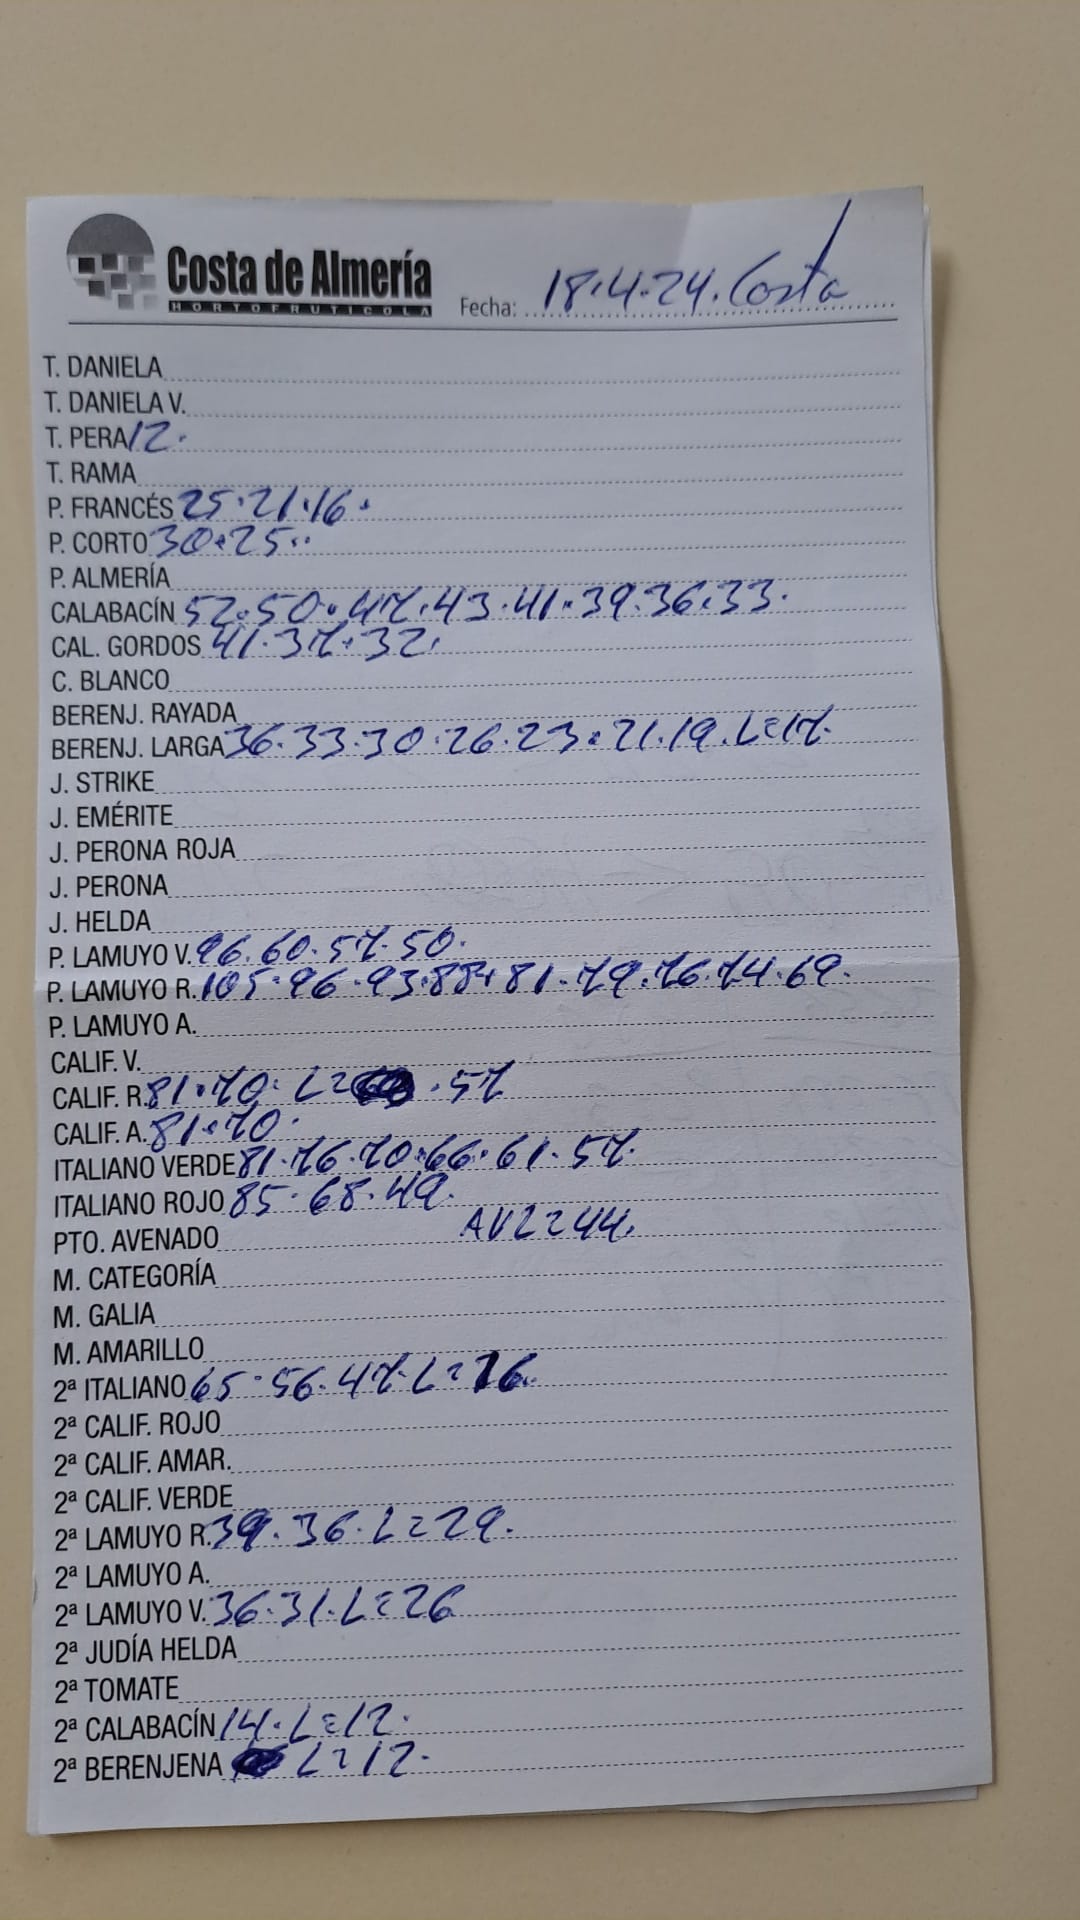 Costa de Almería
HORTOFRUTICOLA
Fecha: 18.4.24. Costa
T. DANIELA
T. DANIELA V.
T. PERA 12.
T. RAMA
P. FRANCÉS 25.21.16.
P. CORTO 30.25..
P. ALMERÍA
CALABACÍN 52.50.47.43.41.39.36.33.
CAL. GORDOS 41.37.32.
C. BLANCO
BERENJ. RAYADA
BERENJ. LARGA 36.33.30.26.23.21.19.L=17.
J. STRIKE
J. EMÉRITE
J. PERONA ROJA
J. PERONA
J. HELDA
P. LAMUYO V. 96.60.57.50.
P. LAMUYO R. 105.96.93.88.81.79.76.74.69.
P. LAMUYO A.
CALIF. V.
CALIF. R. 81.70. L= .57
CALIF. A. 81.70.
ITALIANO VERDE 81.76.70.66.61.57.
ITALIANO ROJO 85.68.49.
PTO. AVENADO AV2=44.
M. CATEGORÍA
M. GALIA
M. AMARILLO
2ª ITALIANO 65.56.47.L=26.
2ª CALIF. ROJO
2ª CALIF. AMAR.
2ª CALIF. VERDE
2ª LAMUYO R. 39.36.L=29.
2ª LAMUYO A.
2ª LAMUYO V. 36.31.L=26
2ª JUDÍA HELDA
2ª TOMATE
2ª CALABACÍN 14.L=12.
2ª BERENJENA L=12.